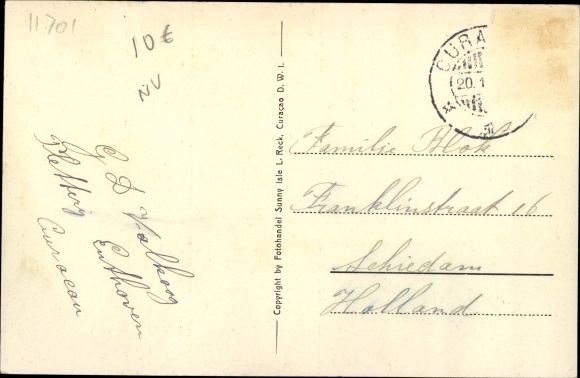 11.701
10 €
NV
G D Valkoog
Enthoven
Curacau
Copyright by Fotohandel Sunny Isle L. Reck, Curaçao D. W. I.
CURA
20.1
Familie Blok
Franklinstraat 16
Schiedam
Holland